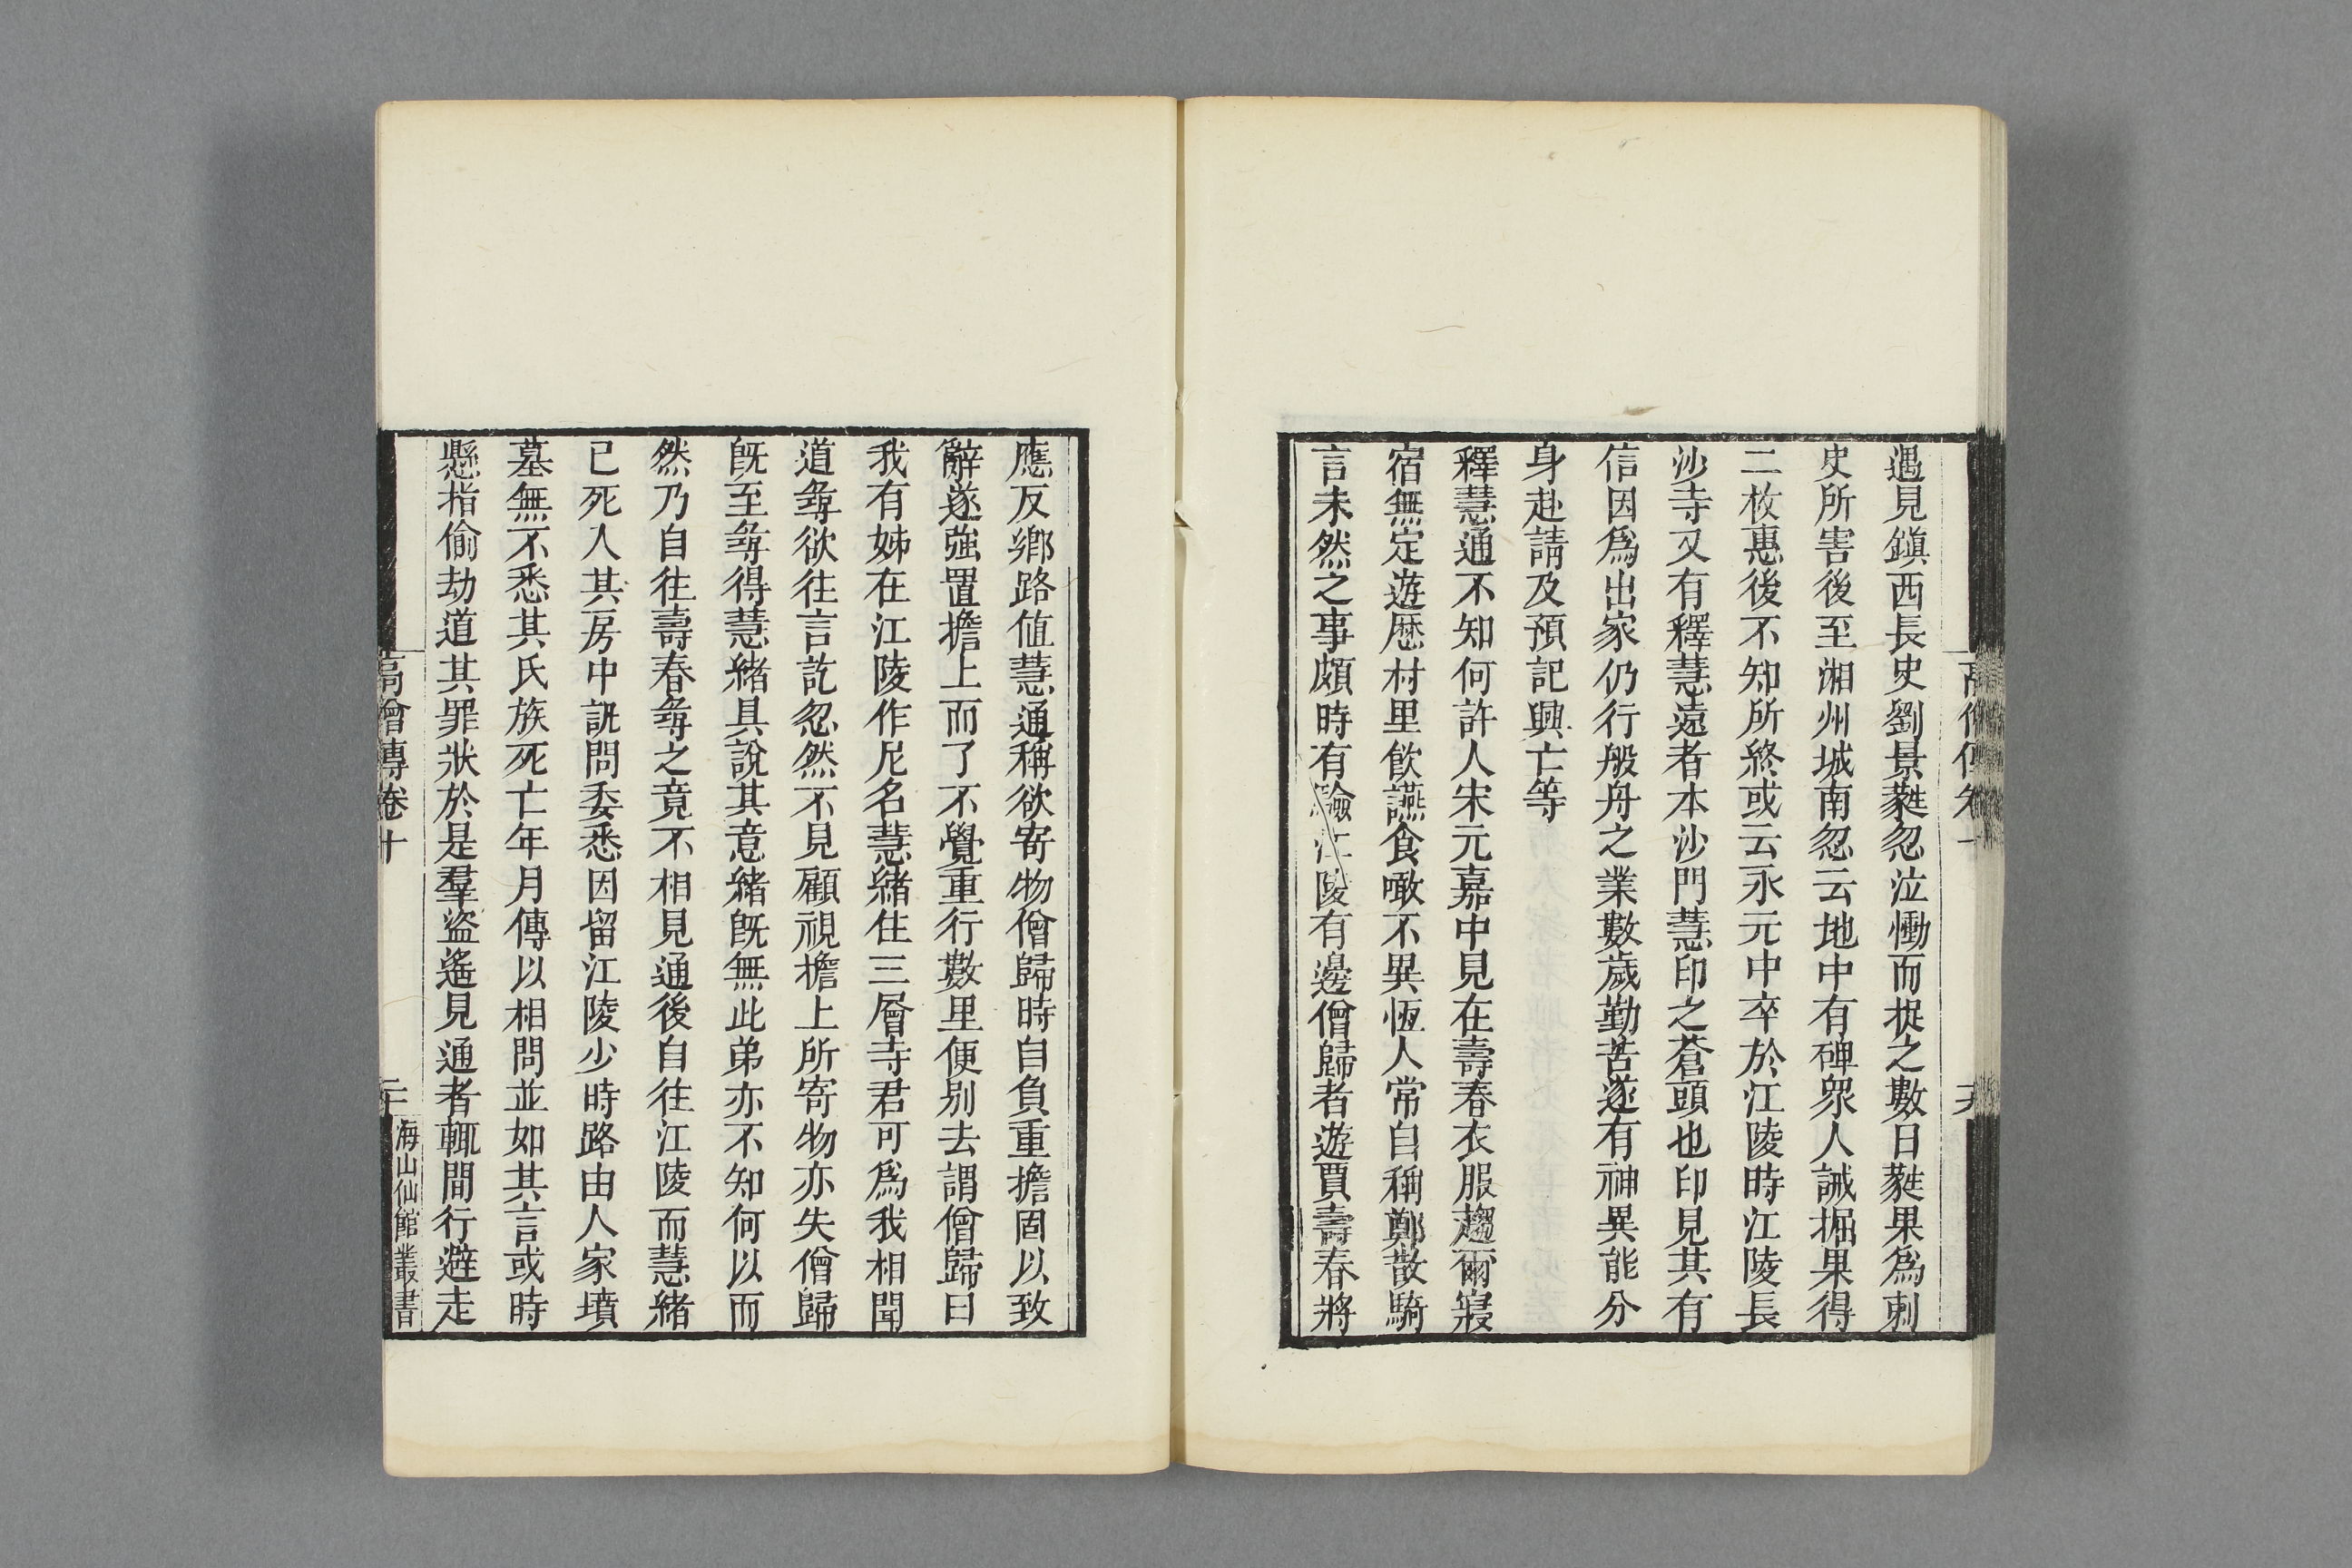 遇見鎭西長史劉景蕤忽泣慟而捉之數日蕤果爲刺
史所害後至湘州城南忽云地中有碑衆人誠掘果得
二枚惠後不知所終或云永元中卒於江陵時江陵長
沙寺又有釋慧遠者本沙門慧印之蒼頭也印見其有
信因爲出家仍行般舟之業數歲勤苦遂有神異能分
身赴請及預記興亡等
釋慧通不知何許人宋元嘉中見在壽春衣服趨爾寢
宿無定遊歷村里飮讌食噉不異恆人常自稱鄭散騎
言未然之事頗時有驗江陵有邊僧歸者遊賈壽春將
應反鄕路値慧通稱欲寄物僧歸時自負重擔固以致
辭遂強置擔上而了不覺重行數里便別去謂僧歸曰
我有姊在江陵作尼名慧緖住三層寺君可爲我相聞
道尋欲往言訖忽然不見顧視擔上所寄物亦失僧歸
旣至尋得慧緖具說其意緖旣無此弟亦不知何以而
然乃自往壽春尋之竟不相見通後自往江陵而慧緖
已死入其房中訊問委悉因留江陵少時路由人家墳
墓無不悉其氏族死亡年月傳以相問並如其言或時
懸指偷劫道其罪狀於是羣盜遙見通者輒間行避走
高僧傳卷十
海山仙館叢書